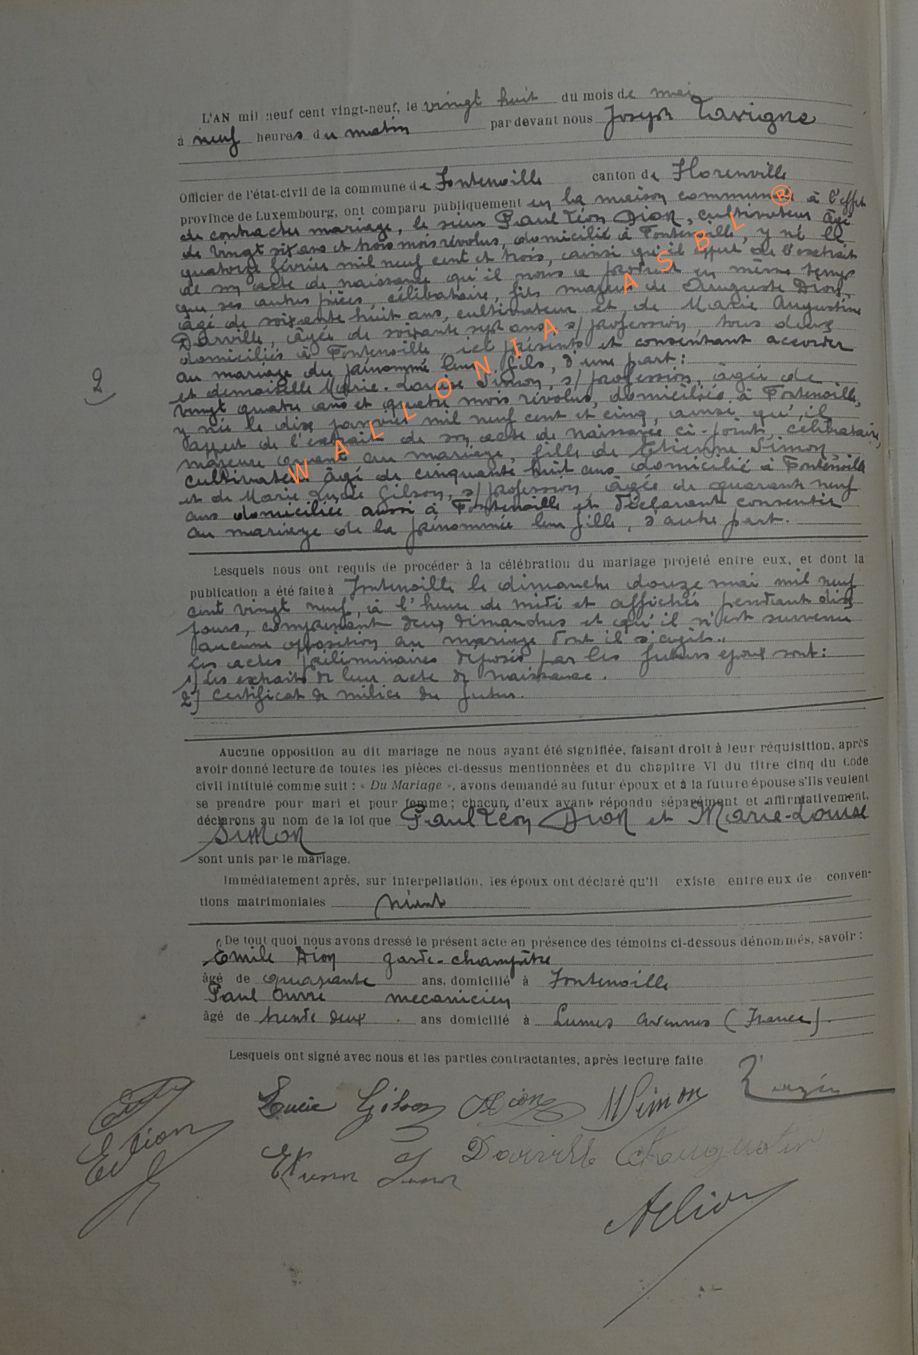 L'AN mil neuf cent vingt-neuf, le vingt huit du mois de mai
à neuf heures du matin par devant nous Joseph Lavigne
Officier de l'état-civil de la commune de Fontenoille canton de Florenville
province de Luxembourg, ont comparu publiquement en la maison commune à l'effet
de contracter mariage, le sieur Paul Léon Dion, cultivateur âgé
de vingt six ans et trois mois révolus, domicilié à Fontenoille, y né le
quatorze février mil neuf cent et trois, ainsi qu'il appert de l'extrait
de son acte de naissance qu'il nous a produit en même temps
que ses autres pièces, célibataire, fils majeur de Auguste Dion,
âgé de soixante huit ans, cultivateur et de Marie Augustine
Darville, âgée de soixante sept ans s/profession, tous deux
domiciliés à Fontenoille, ici présents et consentant accorder
au mariage du prénommé leur fils, d'une part:
et demoiselle Marie-Louise Simon, s/profession, âgée de
vingt quatre ans et quatre mois révolus, domiciliée à Fontenoille,
y née le dix janvier mil neuf cent et cinq, ainsi qu'il
appert de l'extrait de son acte de naissance ci-joint, célibataire,
majeure quant au mariage, fille de Etienne Simon,
cultivateur âgé de cinquante huit ans domicilié à Fontenoille
et de Marie Gilson, s/profession âgée de quarante neuf
ans domiciliée aussi à Fontenoille et déclarant consentir
au mariage de la prénommée leur fille, d'autre part.
2
Lesquels nous ont requis de procéder à la célébration du mariage projeté entre eux, et dont la
publication a été faite à Fontenoille le dimanche douze mai mil neuf
cent vingt neuf, à l'heure de midi et affichée pendant dix
jours, comprenant deux dimanches et qu'il n'est survenu
aucune opposition au mariage dont il s'agit.
Les actes préliminaires déposés par les futurs époux sont:
1) Les extraits de leur acte de naissance.
2) Certificat de milice du futur.
Aucune opposition au dit mariage ne nous ayant été signifiée, faisant droit à leur réquisition, après
avoir donné lecture de toutes les pièces ci-dessus mentionnées et du chapitre VI du titre cinq du Code
civil intitulé comme suit : « Du Mariage », avons demandé au futur époux et à la future épouse s'ils veulent
se prendre pour mari et pour femme ; chacun d'eux ayant répondu séparément et affirmativement,
déclarons au nom de la loi que Paul Léon Dion et Marie-Louise
Simon
sont unis par le mariage.
Immédiatement après, sur interpellation, les époux ont déclaré qu'il existe entre eux de conven-
tions matrimoniales néant
De tout quoi nous avons dressé le présent acte en présence des témoins ci-dessous dénommés, savoir :
Emile Dion garde-champêtre
âgé de quarante ans, domicilié à Fontenoille
Paul mecanicien
âgé de trente deux ans domicilié à Lumes Avennes (France)
Lesquels ont signé avec nous et les parties contractantes, après lecture faite
Lucie Gilson ADion MSimon
EDion
Darville Augustine
WALLONIA ASBL ®